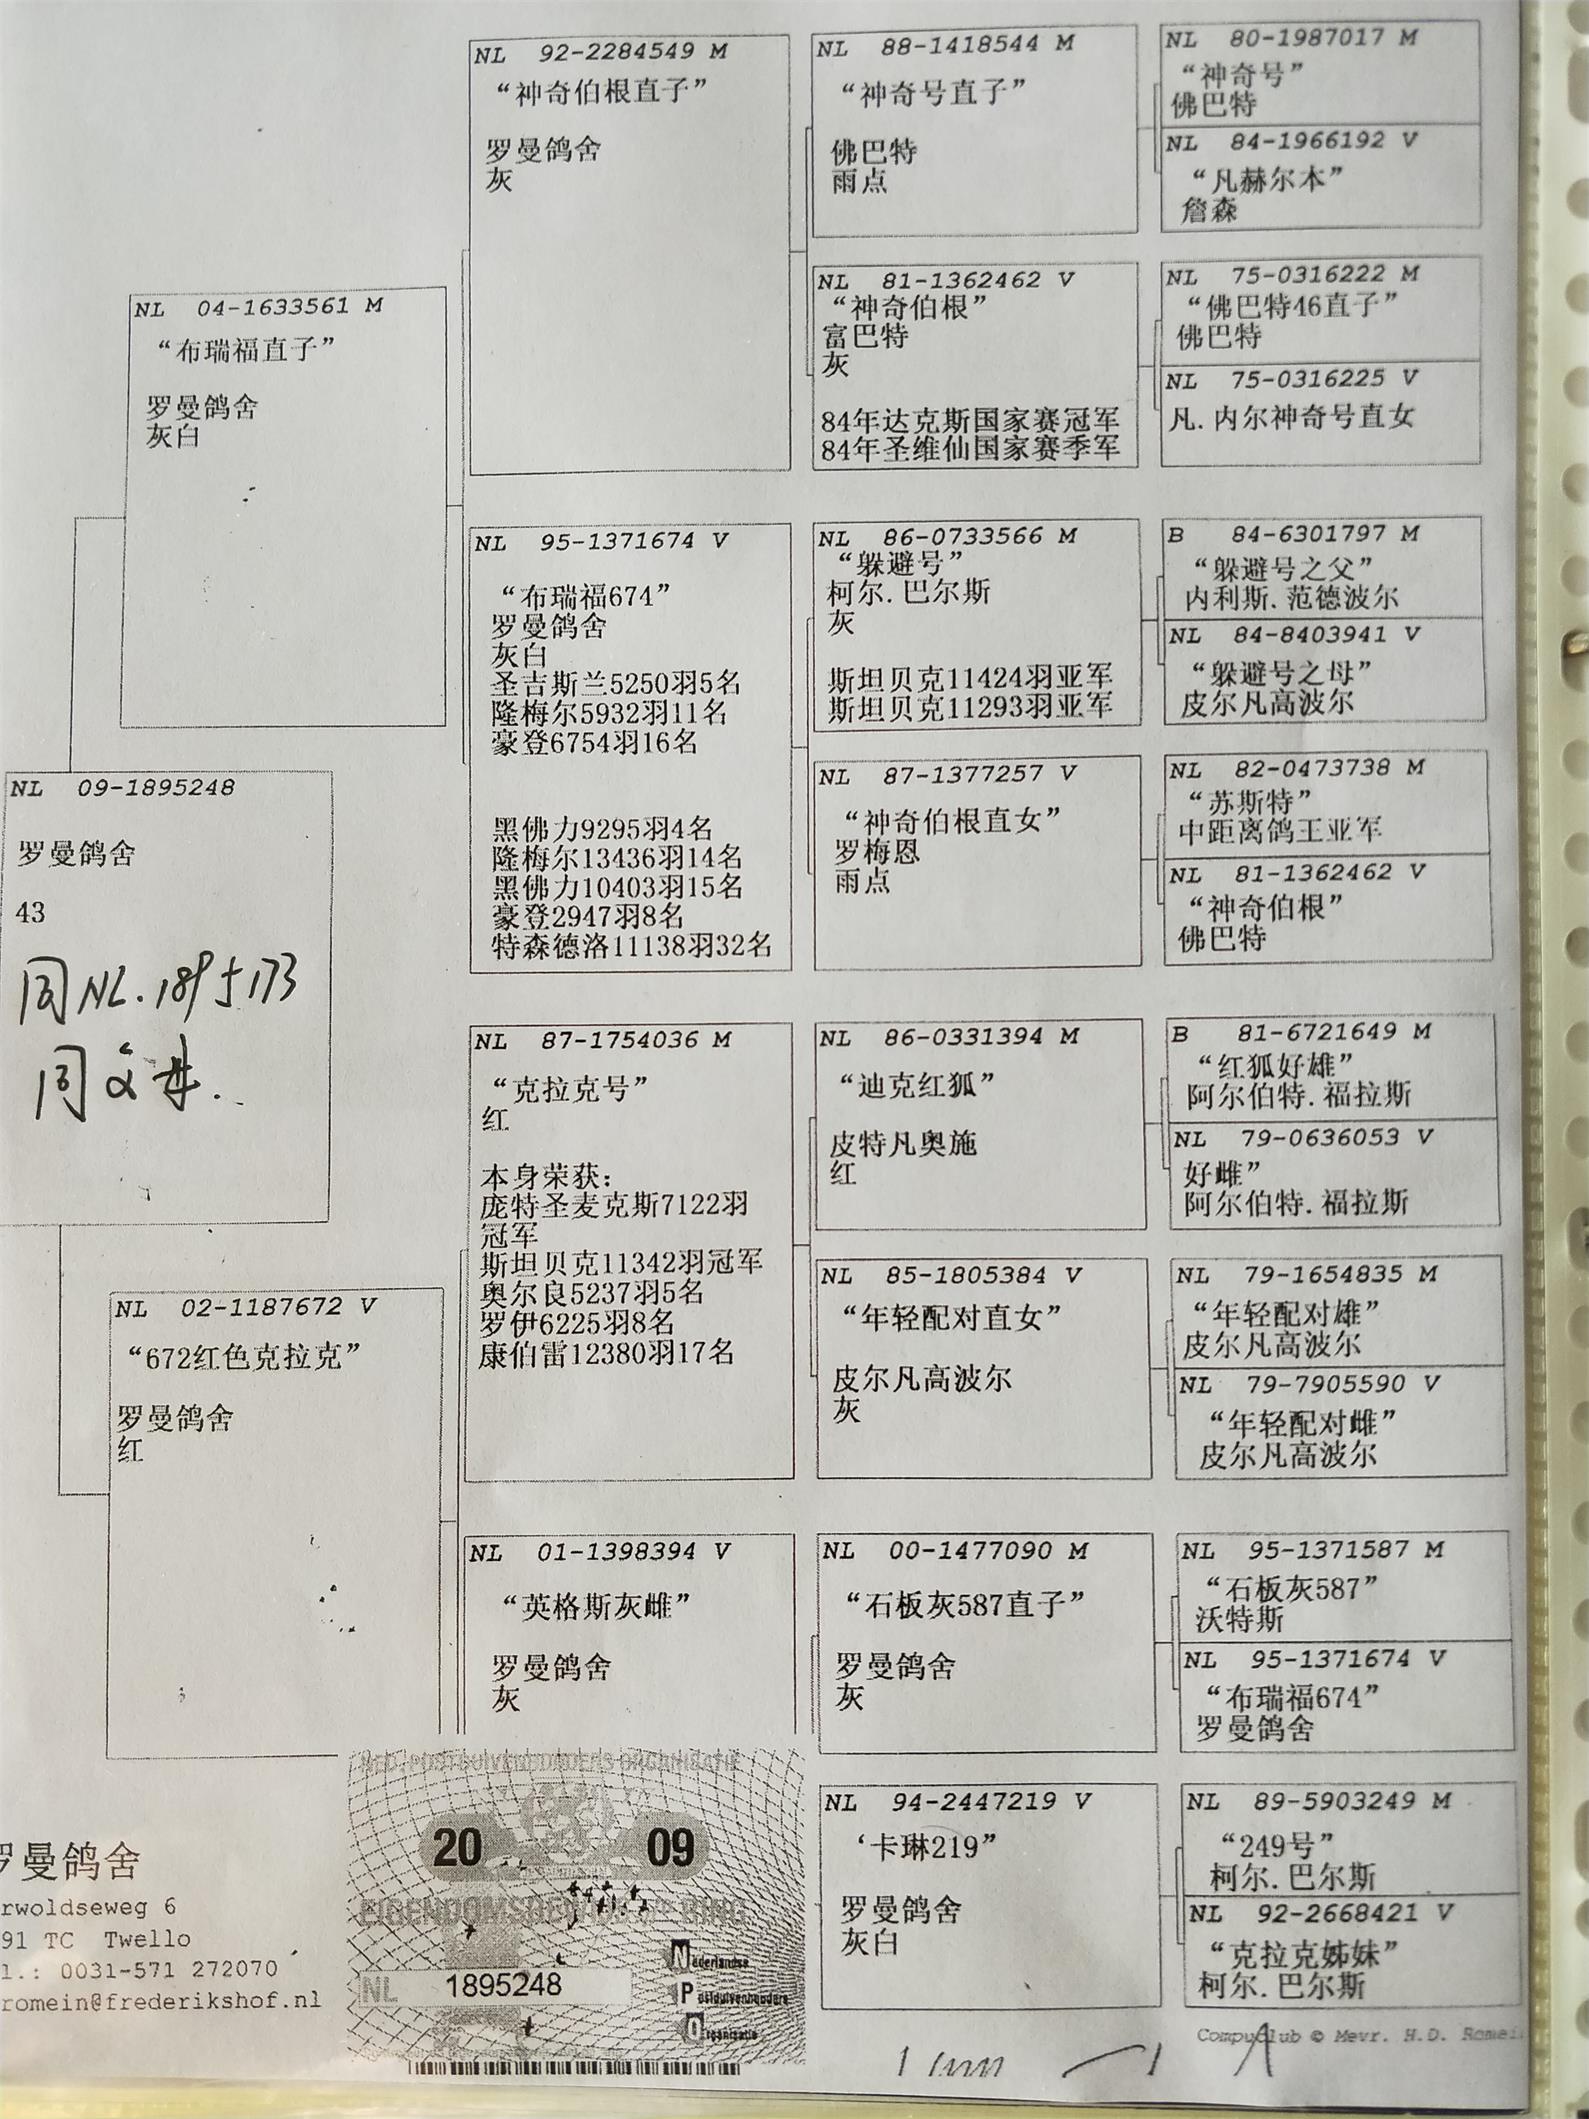 NL 09-1895248
罗曼鸽舍
43
同NL.1895173
同父母.
NL 04-1633561 M
“布瑞福直子”
罗曼鸽舍
灰白
NL 02-1187672 V
“672红色克拉克”
罗曼鸽舍
红
NL 92-2284549 M
“神奇伯根直子”
罗曼鸽舍
灰
NL 95-1371674 V
“布瑞福674”
罗曼鸽舍
灰白
圣吉斯兰5250羽5名
隆梅尔5932羽11名
豪登6754羽16名
黑佛力9295羽4名
隆梅尔13436羽14名
黑佛力10403羽15名
豪登2947羽8名
特森德洛11138羽32名
NL 87-1754036 M
“克拉克号”
红
本身荣获:
庞特圣麦克斯7122羽
冠军
斯坦贝克11342羽冠军
奥尔良5237羽5名
罗伊6225羽8名
康伯雷12380羽17名
NL 01-1398394 V
“英格斯灰雌”
罗曼鸽舍
灰
NL 88-1418544 M
“神奇号直子”
佛巴特
雨点
NL 81-1362462 V
“神奇伯根”
富巴特
灰
84年达克斯国家赛冠军
84年圣维仙国家赛季军
NL 86-0733566 M
“躲避号”
柯尔.巴尔斯
灰
斯坦贝克11424羽亚军
斯坦贝克11293羽亚军
NL 87-1377257 V
“神奇伯根直女”
罗梅恩
雨点
NL 86-0331394 M
“迪克红狐”
皮特凡奥施
红
NL 85-1805384 V
“年轻配对直女”
皮尔凡高波尔
灰
NL 00-1477090 M
“石板灰587直子”
罗曼鸽舍
灰
NL 94-2447219 V
‘卡琳219”
罗曼鸽舍
灰白
NL 80-1987017 M
“神奇号”
佛巴特
NL 84-1966192 V
“凡赫尔本”
詹森
NL 75-0316222 M
“佛巴特46直子”
佛巴特
NL 75-0316225 V
凡.内尔神奇号直女
B 84-6301797 M
“躲避号之父”
内利斯.范德波尔
NL 84-8403941 V
“躲避号之母”
皮尔凡高波尔
NL 82-0473738 M
“苏斯特”
中距离鸽王亚军
NL 81-1362462 V
“神奇伯根”
佛巴特
B 81-6721649 M
“红狐好雄”
阿尔伯特.福拉斯
NL 79-0636053 V
好雌”
阿尔伯特.福拉斯
NL 79-1654835 M
“年轻配对雄”
皮尔凡高波尔
NL 79-7905590 V
“年轻配对雌”
皮尔凡高波尔
NL 95-1371587 M
“石板灰587”
沃特斯
NL 95-1371674 V
“布瑞福674”
罗曼鸽舍
NL 89-5903249 M
“249号”
柯尔.巴尔斯
NL 92-2668421 V
“克拉克姊妹”
柯尔.巴尔斯
罗曼鸽舍
rwoldseweg 6
91 TC Twello
l.: 0031-571 272070
romein@frederikshof.nl
NED. POSTDUIVENHOUDERS ORGANISATIE
20 09
EIGENDOMSBEWIJS RING
NL 1895248
Nederlandse
Postduivenhouders
Organisatie
Compuclub © Mevr. H.D. Romein